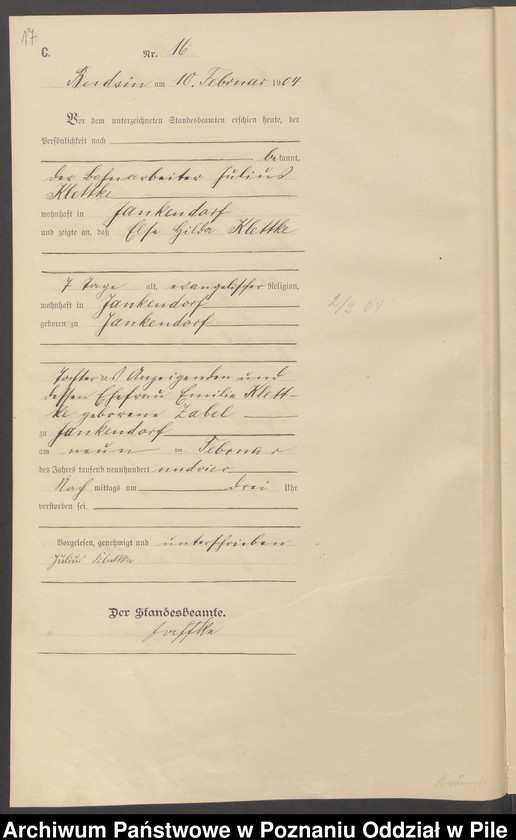 17
C.
Nr. 16
Budsin am 10. Februar 1904
Vor dem unterzeichneten Standesbeamten erschien heute, der
Persönlichkeit nach
bekannt,
der Bahnarbeiter Julius
Klettke
wohnhaft in Jankendorf
und zeigte an, daß Else Hilda Klettke
7 Tage alt, evangelischer Religion,
wohnhaft in Jankendorf
geboren zu Jankendorf
Tochter des Anzeigenden und
dessen Ehefrau Emilie Klett-
ke geborene Zabel
zu Jankendorf
am neun ten Februar
des Jahres tausend neunhundert und vier
Nach mittags um drei Uhr
verstorben sei.
Vorgelesen, genehmigt und unterschrieben
Julius Klettke
Der Standesbeamte.
Archiwum Państwowe w Poznaniu Oddział w Pile